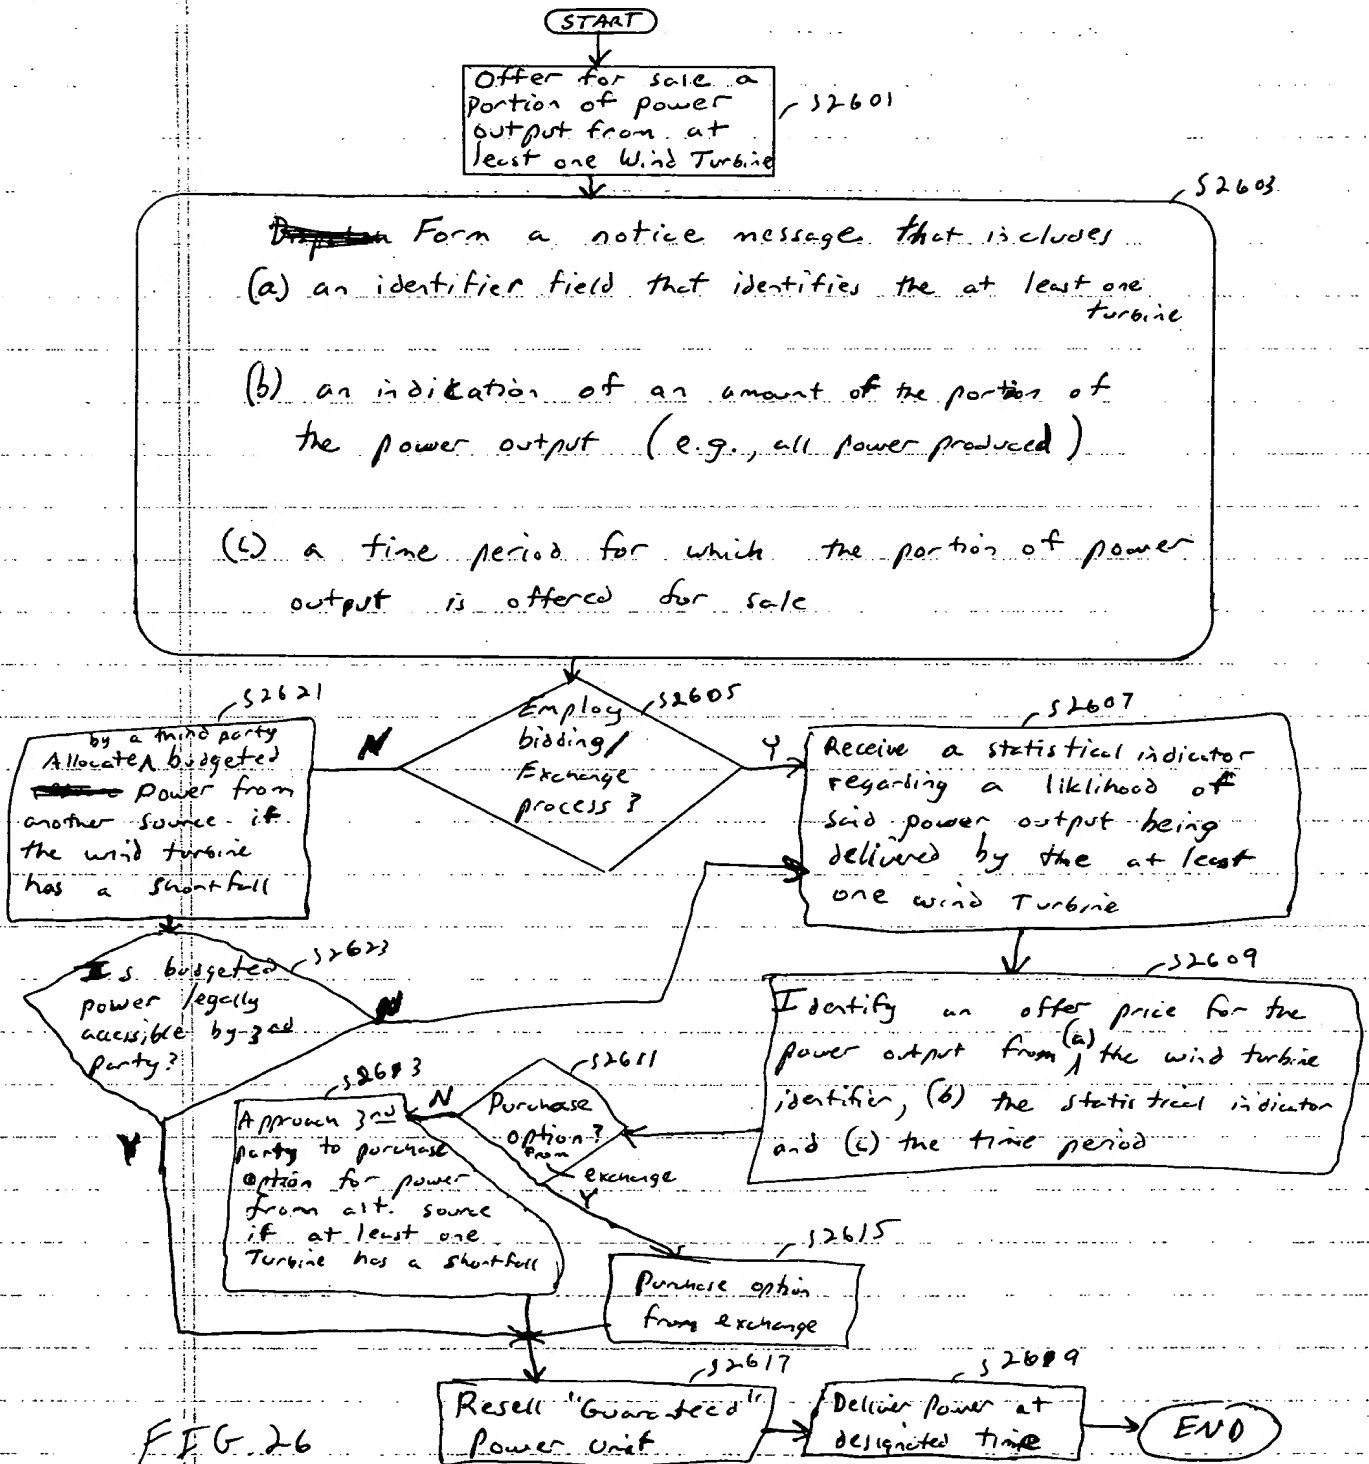 START
Offer for sale a
portion of power
output from at
least one Wind Turbine
S2601
S2603
Form a notice message that includes
(a) an identifier field that identifies the at least one
turbine
(b) an indication of an amount of the portion of
the power output (e.g., all power produced)
(c) a time period for which the portion of power
output is offered for sale
S2605
Employ
bidding/
Exchange
process?
N
Y
S2621
by a third party
Allocate budgeted
Power from
another source if
the wind turbine
has a shortfall
S2607
Receive a statistical indicator
regarding a liklihood of
said power output being
delivered by the at least
one wind Turbine
S2623
Is budgeted
power legally
accessible by 3rd
party?
N
Y
S2609
Identify an offer price for the
power output from (a) the wind turbine
identifier, (b) the statistical indicator
and (c) the time period
S2611
Purchase
option?
from
exchange
N
Y
S2613
Approach 3rd
party to purchase
option for power
from alt. source
if at least one
Turbine has a shortfall
S2615
Purchase option
from exchange
S2617
Resell "Guaranteed"
Power unit
S2619
Deliver Power at
designated time
END
FIG. 26